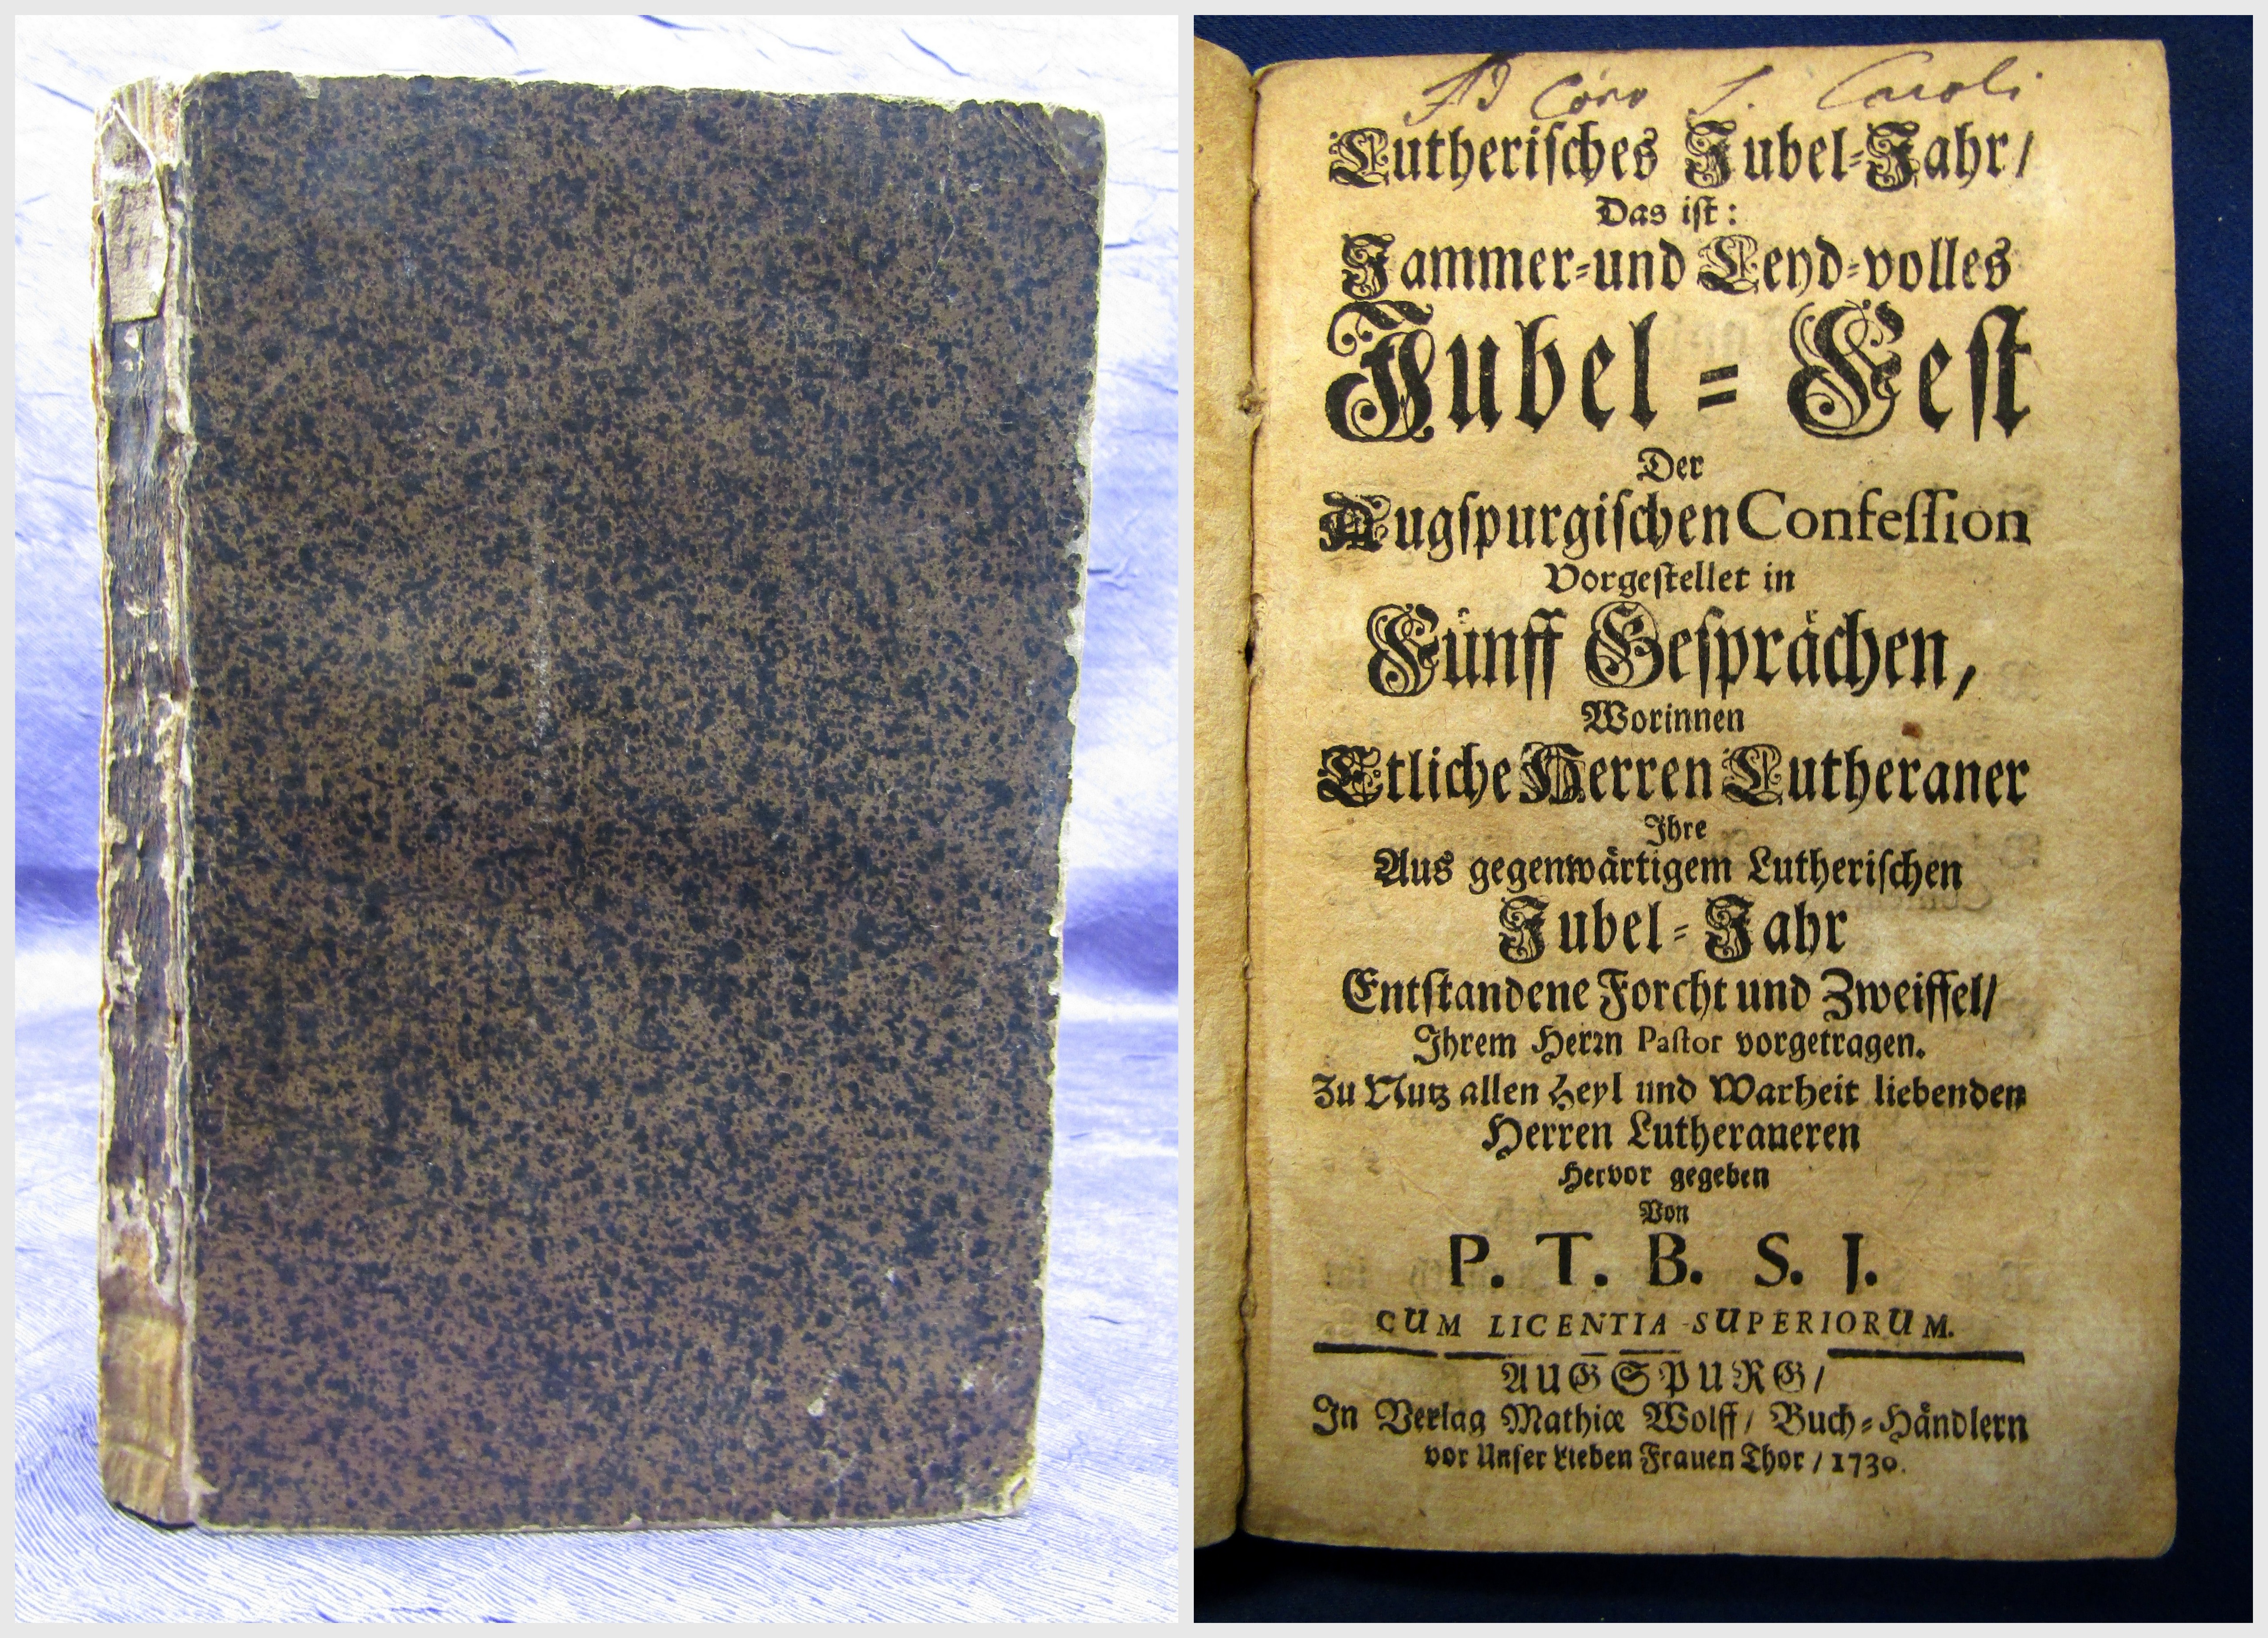 Lutherisches Jubel-Jahr/
Das ist:
Jammer-und Leyd-volles
Jubel-Fest
Der
Augspurgischen Confession
Vorgestellet in
Fünff Gesprächen,
Worinnen
Etliche Herren Lutheraner
Ihre
Aus gegenwärtigem Lutherischen
Jubel-Jahr
Entstandene Forcht und Zweiffel/
Ihrem Herrn Pastor vorgetragen.
Zu Nutz allen Heyl und Warheit liebenden
Herren Lutheraneren
Hervor gegeben
Von
P. T. B. S. J.
CUM LICENTIA SUPERIORUM.
AUGSPURG/
In Verlag Mathiæ Wolff/ Buch-Händlern
vor Unser Lieben Frauen Thor/ 1730.